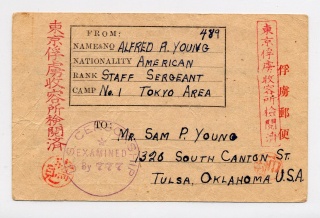 FROM:
489
NAME&NO ALFRED A. YOUNG
NATIONALITY AMERICAN
RANK STAFF SERGEANT
CAMP No. 1 TOKYO AREA
東京俘虜収容所検閲済
東京俘虜収容所検閲済
俘虜郵便
TO:
MR. SAM P. YOUNG
1326 SOUTH CANTON ST.
TULSA, OKLAHOMA U.S.A.
CENSORSHIP
EXAMINED
By 777